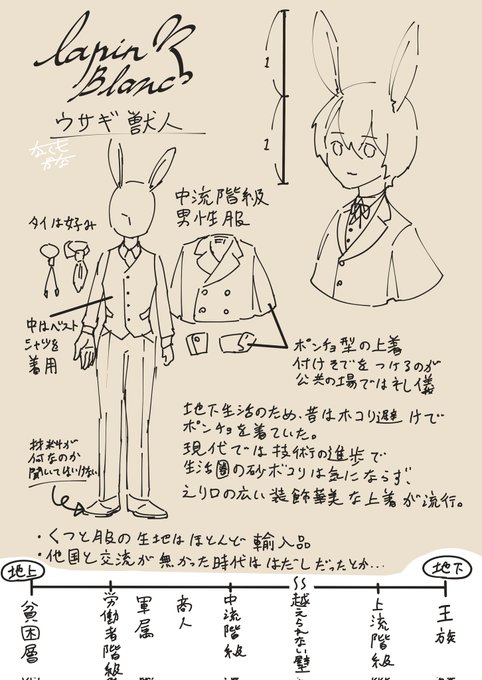 lapin
Blanc
ウサギ獣人
1
1
中流階級
男性服
タイは好み
中はベスト
シャツを
着用
ポンチョ型の上着
付けそでをつけるのが
公共の場では礼儀
地下生活のため、昔はホコリ避けで
ポンチョを着ていた。
現代では技術の進歩で
生活圏の砂ボコリは気にならず、
えり口の広い装飾華美な上着が流行。
材料が
何なのか
聞いてはいけない
・くつと服の生地はほとんど輸入品
・他国と交流が無かった時代ははだしだったとか…
地上
地下
貧困層
労働者階級
軍属
商人
中流階級
越えられない壁
上流階級
王族